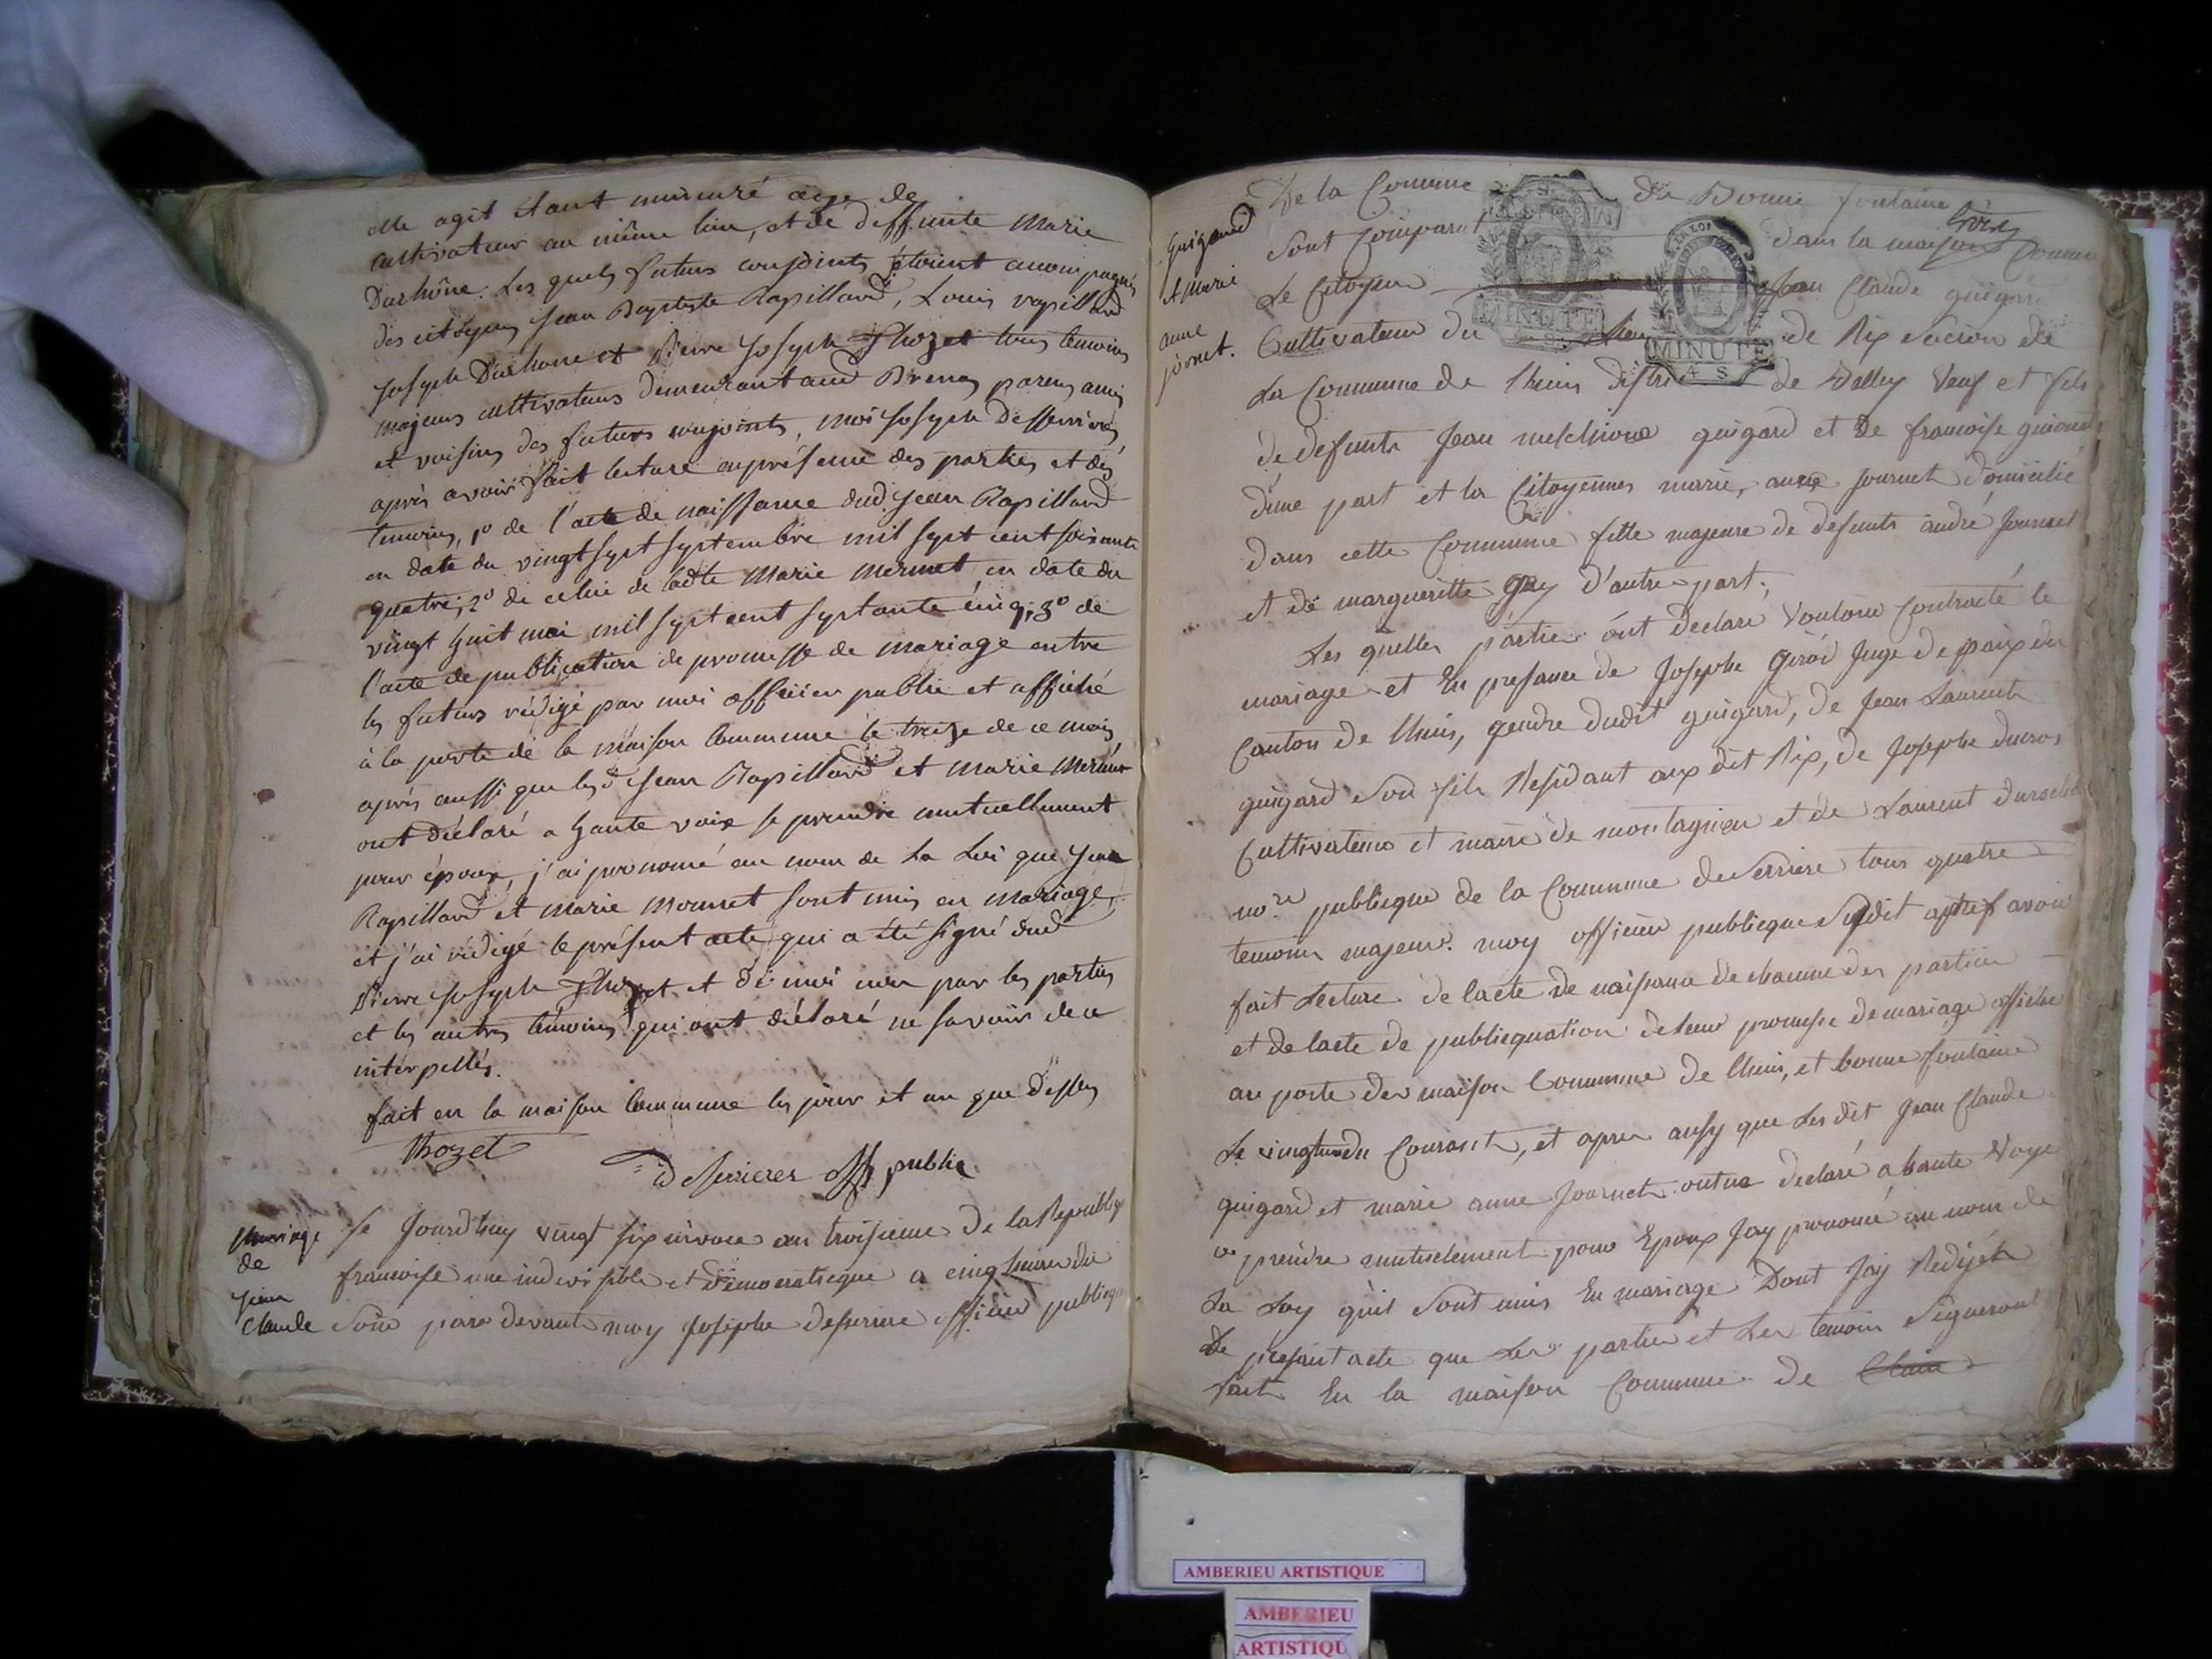 elle agit étant mineure âgée de
cultivateur au même lieu, et de deffunte Marie
Duchône. Les quels futurs conjoints étoient accompagnés
des citoyens Jean Baptiste Rapillard, Louis rapillard
Joseph Duchone et Pierre Joseph Thozet tous temoins
majeurs cultivateurs demeurant aud Brenos parens amis
et voisins des futurs conjoints, moi Joseph Desserrieres
après avoir fait lecture en présence des parties et des
temoins, 1º de l'acte de naissance dud. Jean Rapillard
en date du vingt sept septembre mil sept cent soixante
quatre; 2º de celui de ladte Marie Mermet en date du
vingt huit mai mil sept cent septante cinq; 3º de
l'acte de publication de promesse de mariage entre
les futurs rédigé par moi officier public et affiché
à la porte de la maison Commune le treize de ce mois
après aussi que lesd Jean Rapillard et Marie Mermet
ont déclaré a haute voix se prendre mutuellement
pour époux, j'ai prononcé au nom de La Loi que Jean
Rapillard et Marie Mermet sont unis en mariage,
et j'ai rédigé le présent acte qui a été signé dud
Pierre Joseph Thozet et de moi non par les parties
et les autres témoins qui ont déclaré ne savoir de ce
interpellés.
fait en la maison Commune les jour et an que dessus
Thozet
Desserrieres off public
Mariage
de
Jean
Claude
Ce Jourdhuy vingt six nivose an troisieme De la Republiq
francoise une indivisible et démocratieque a cinq heures du
Soire pare devant moy Josephe desserriere officier publieq
Guigard
et Marie
anne
jornet.
De la Commune de Bonne fontaine
Sont Comparut dans la maison Commune
Le Citoyen Jean Claude guigard
Cultivateur du lieu de Rix Section de
La Commune de Lhuis distri de Belley Veuf et fils
de defunts Jean melchiore guigard et De francoise guionet
d'une part et la Citoyennes marie, anne Journet domicilié
dans cette Commune fille majeure de defunts andré Journet
et de margueritte Gay d'autre part;
Les quelles partier ont Declaré Vouloire Contracté le
mariage et En presance de Josephe Girod Juge de paix du
Canton de Lhuis, gendre dudit guigard, de Jean Laurent
guigard Son fils Residant aux dit Rix, de Josephe ducros
Cultivateur et maire de montagnieu et de Laurent
no.re publieque de la Commune de Serriere tous quatre
temoins majeur. moy officier publieque Susdit apres avoir
fait Lecture de lacte de naissance de chacune des partier
et de lacte de publiequation de leur promesse de mariage affiche
au porte des maison Commune de lhuis, et bonne fontaine
Le vingt un du Courant, et apres ausy que Les dit Jean Claude
guigard et marie anne Journet ont declaré a haute Voye
ce prendre mutuelement pour Epoux Jay prononcé au nom de
La Loy quil Sont unis En mariage Dont Jay Redijét
Le presant acte que Les partier et Les temoin Signeront
fait En la maison Commune de
MINUTE
MINUTE
4 S
LA LOI
AMBERIEU ARTISTIQUE
AMBERIEU
ARTISTIQU